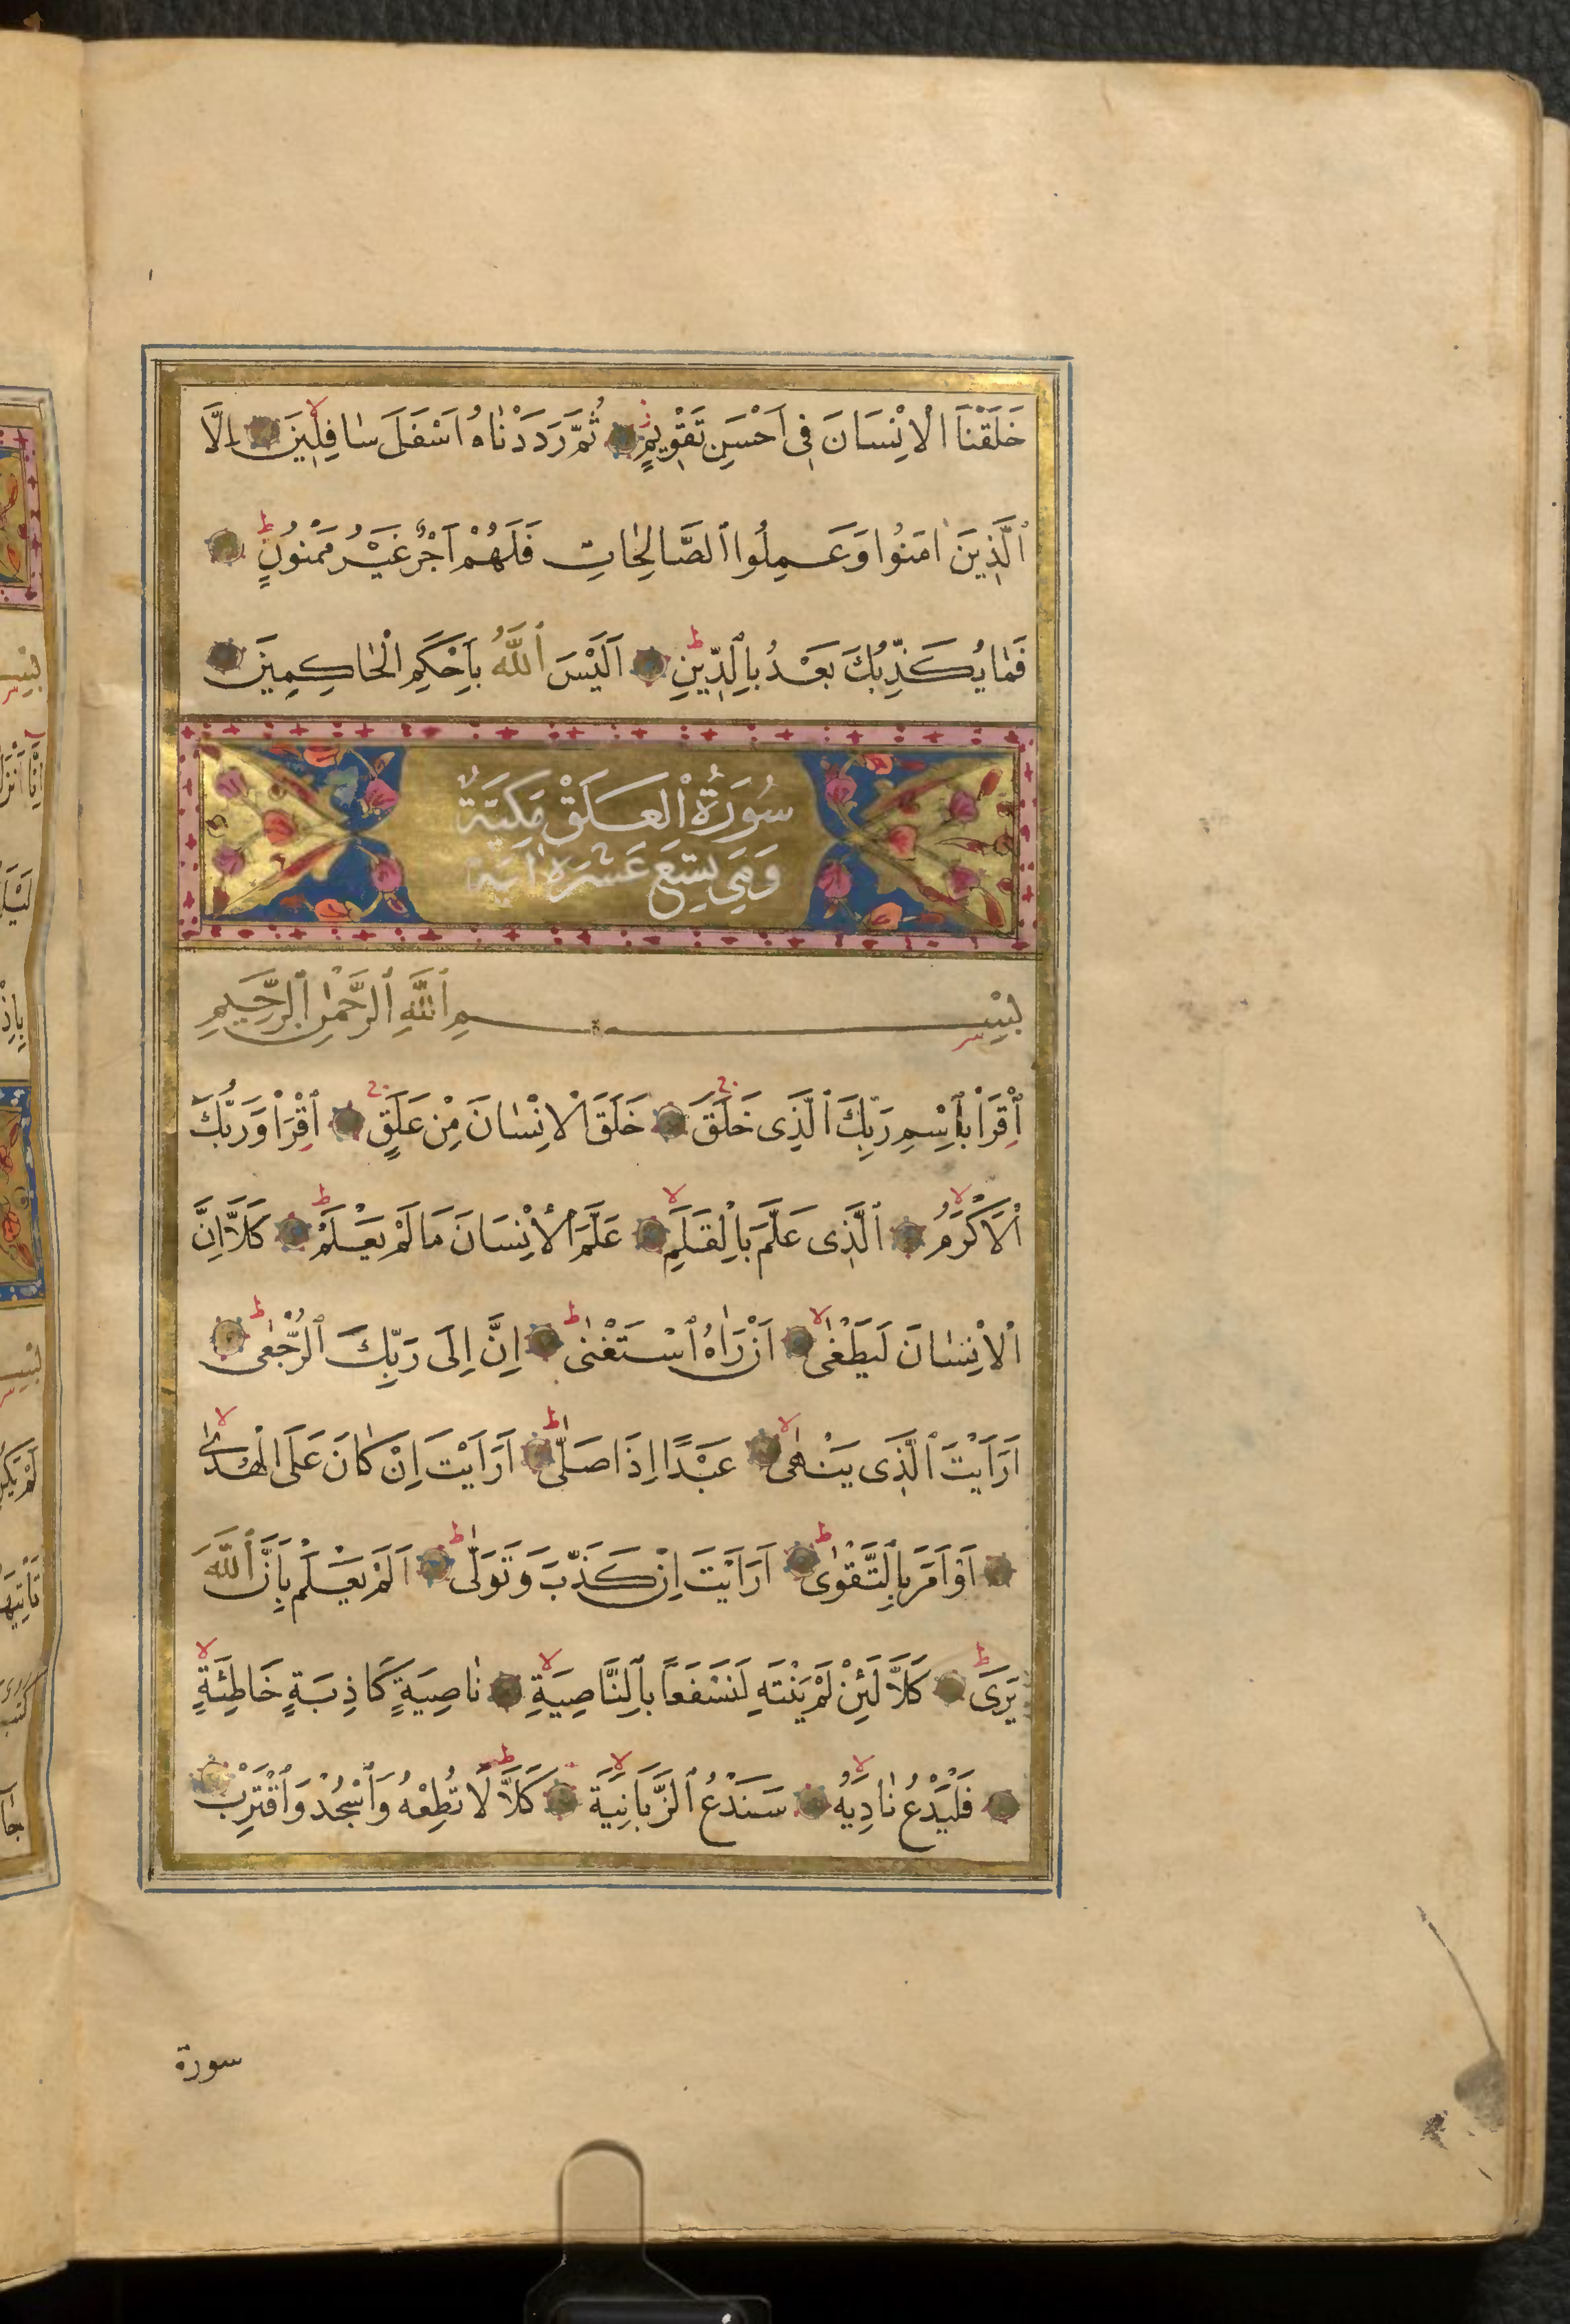 خَلَقْنَا الْاِنْسَانَ فِى اَحْسَنِ تَقْوِيمٍ ثُمَّ رَدَدْنَاهُ اَسْفَلَ سَافِلِينَ اِلَّا
الَّذِينَ اٰمَنُوا وَعَمِلُوا الصَّالِحَاتِ فَلَهُمْ اَجْرٌ غَيْرُ مَمْنُونٍ
فَمَا يُكَذِّبُكَ بَعْدُ بِالدِّينِ اَلَيْسَ اللّٰهُ بِاَحْكَمِ الْحَاكِمِينَ
سُورَةُ الْعَلَقْ مَكِيَّةٌ
وَهِىَ تِسْعَ عَشْرَةَ اٰيَة
بِسْمِ اللّٰهِ الرَّحْمٰنِ الرَّحِيمِ
اِقْرَأْ بِاسْمِ رَبِّكَ الَّذِى خَلَقَ خَلَقَ الْاِنْسَانَ مِنْ عَلَقٍ اِقْرَأْ وَرَبُّكَ
الْاَكْرَمُ الَّذِى عَلَّمَ بِالْقَلَمِ عَلَّمَ الْاِنْسَانَ مَا لَمْ يَعْلَمْ كَلَّا اِنَّ
الْاِنْسَانَ لَيَطْغٰى اَنْ رَاٰهُ اسْتَغْنٰى اِنَّ اِلَى رَبِّكَ الرُّجْعٰى
اَرَاَيْتَ الَّذِى يَنْهٰى عَبْدًا اِذَا صَلّٰى اَرَاَيْتَ اِنْ كَانَ عَلَى الْهُدٰى
اَوْ اَمَرَ بِالتَّقْوٰى اَرَاَيْتَ اِنْ كَذَّبَ وَتَوَلّٰى اَلَمْ يَعْلَمْ بِاَنَّ اللّٰهَ
يَرَى كَلَّا لَئِنْ لَمْ يَنْتَهِ لَنَسْفَعًا بِالنَّاصِيَةِ نَاصِيَةٍ كَاذِبَةٍ خَاطِئَةٍ
فَلْيَدْعُ نَادِيَهُ سَنَدْعُ الزَّبَانِيَةَ كَلَّا لَا تُطِعْهُ وَاسْجُدْ وَاقْتَرِبْ
سورة